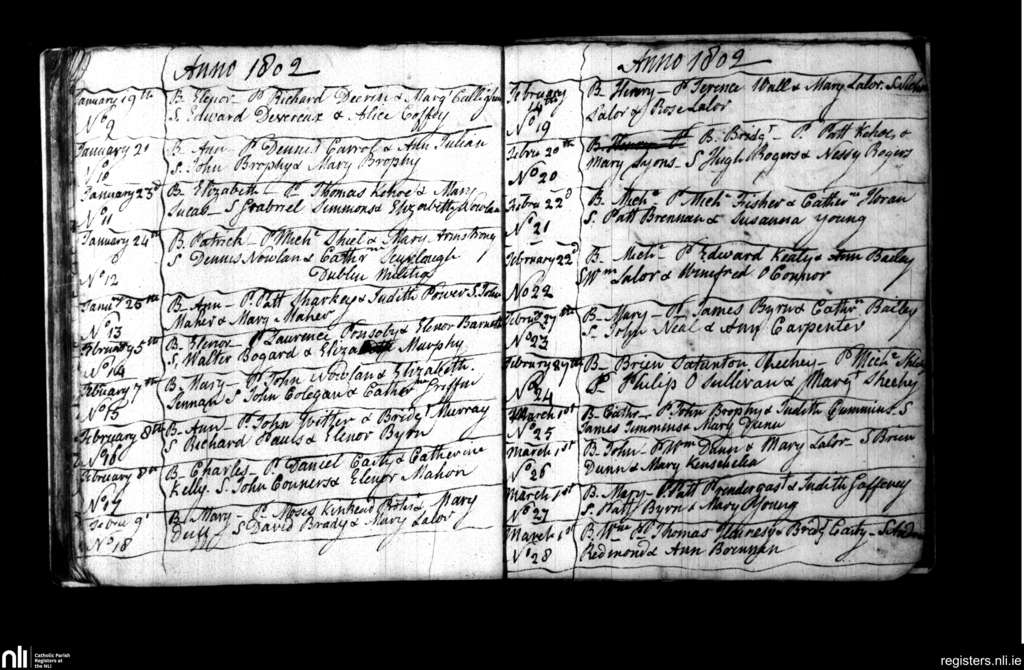 Anno 1802
January 19th B. Elenor - P. Richard Deerin & Margt Calligham
No 9 S. Edward Devereux & Alice Coffey
January 21 B. Ann - P. Dennis Carrol & Ann Julian
No 10 S. John Brophy & Mary Brophy
January 23d B. Elizabeth - P. Thomas Kehoe & Mary
No 11 S. Gabriel Simmons & Elizabeth Nowlan
January 24th B. Patrick - P. Michl Shiel & Mary Armstrong
No 12 S. Dennis Nowlan & Cathrn
Dublin Militia
Janur 26th B. Ann - P. Patt Sharkey & Judith Power S. John
No 13 Maher & Mary Maher
February 5th B. Elenor - P. Laurence Ponsoby & Elenor Barnett
No 14 S. Walter Bogard & Eliza Murphy
February 7th B. Mary - P. John Nowlan & Elizabeth
No 15 Pennan S. John Colegan & Cather Griffin
February 8th B. Ann - P. John Witter & Bridgt Murray
No 16 S. Richard Pauls & Elenor Byrn
February 8th B. Charles - P. Daniel Caity & Catherine
No 17 Kelly. S. John Conners & Elenor Mahon
Febru 9th B. Mary - P. Moses Kinhead & Mary
No 18 Duff - S. David Brady & Mary Lalor
Anno 1802
February 14th B. Henry - P. Terence Wall & Mary Lalor.
No 19 Lalor & Rose Lalor
Febru 20th B. Bridgt P. Patt Kehoe, &
No 20 Mary Lyons. S. Hugh Rogers & Nessy Rogers
Febru 22d B. Michl P. Michl Fisher & Cathern Horan
No 21 S. Patt Brennan & Susanna young
February 22d B. Michl P. Edward Kealy & Ann Bailey
No 22 S. Wm Lalor & Winefred O Connor
Februr 27th B. Mary - P. James Byrn & Cathrn Bailey
No 23 S. John Neal & Amy Carpenter
February 27th B. Brien Sheehey - P. Michl
No 24 S. Philip O Sullevan & Mary Sheehy
March 1st B. Cathr - P. John Brophy & Judith Cummins S
No 25 James Simmins & Mary Dunn
March 1st B. John - P. Wm Dunn & Mary Lalor - S Brien
No 26 Dunn & Mary Kenshelea
March 1st B. Mary - P. Patt Prendergast & Judith Gaffeney
No 27 S. Patt Byrn & Mary Young
March 1st B. Wm P. Thomas & Bridgt Caity -
No 28 Redmond & Ann Brennan
nli
Catholic Parish
Registers at
the NLI
registers.nli.ie